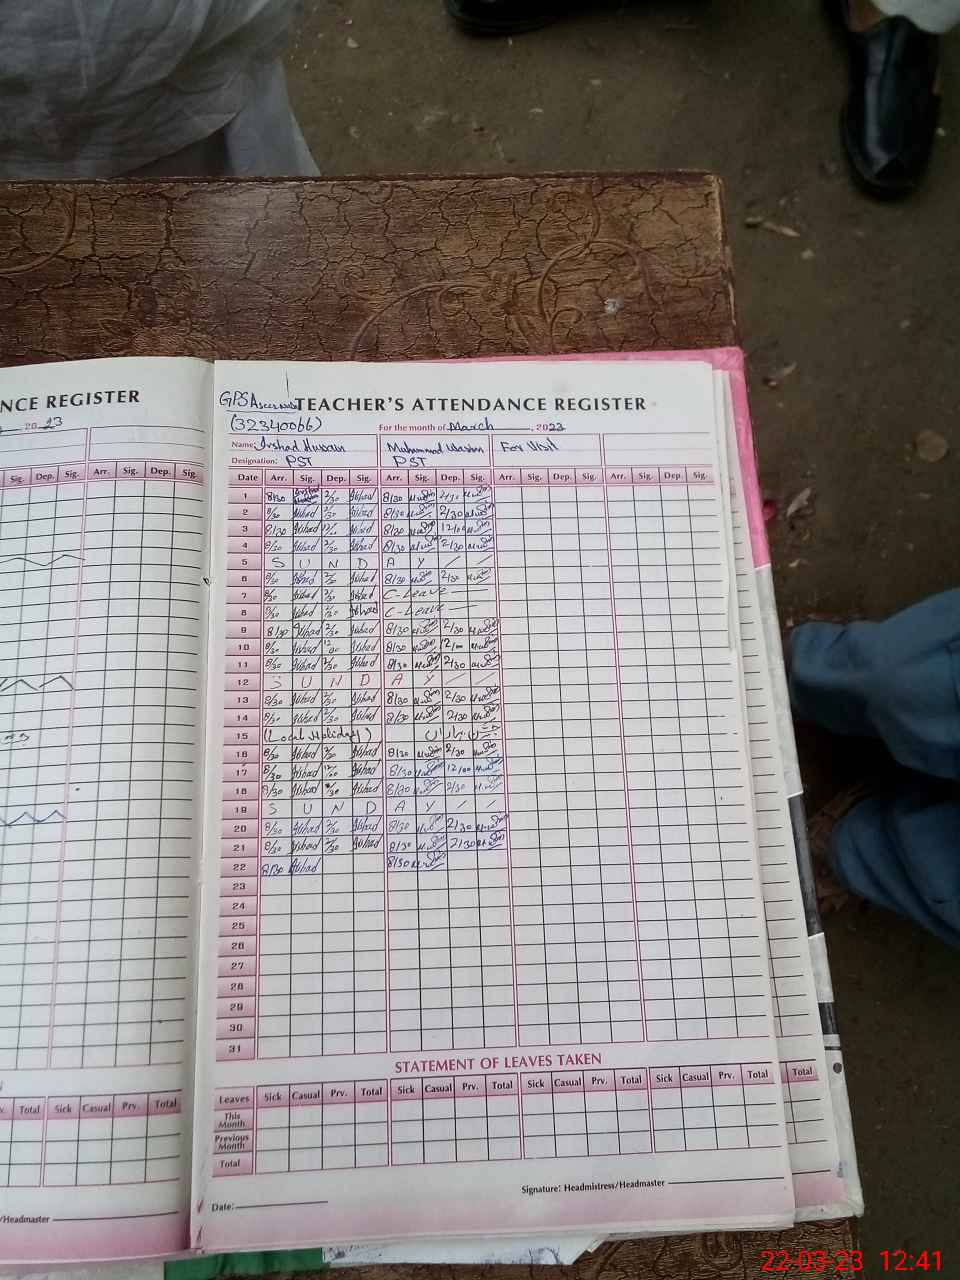 NCE REGISTER
20 23
Sig. Dep. Sig. Arr. Sig. Dep. Sig.
Total Sick Casual Prv. Total
/Headmaster
GPS
TEACHER'S ATTENDANCE REGISTER
(32340066)
For the month of March, 2023
Name: Irshad Hussain Muhammad For Visit
Designation: PST PST
Date Arr. Sig. Dep. Sig. Arr. Sig. Dep. Sig. Arr. Sig. Dep. Sig. Arr. Sig. Dep. Sig.
1 8/30 2/30 Irshad 8/30 2/30
2 8/30 Irshad 2/30 Irshad 8/30 2/30
3 8/30 Irshad Irshad 8/30 12/00
4 8/30 Irshad 2/30 Irshad 8/30 2/30
5 S U N D A Y / /
6 8/30 Irshad 2/30 Irshad 8/30 2/30
7 8/30 Irshad 2/30 Irshad C-Leave
8 8/30 Irshad 2/30 Irshad C-Leave
9 8/30 Irshad 2/30 Irshad 8/30 2/30
10 8/30 Irshad 12/00 Irshad 8/30
11 8/30 Irshad 2/30 Irshad 8/30 2/30
12 S U N D A Y / /
13 8/30 Irshad 2/30 Irshad 8/30 2/30
14 8/30 Irshad 2/30 Irshad 8/30 2/30
15 (Local Holiday)
16 8/30 Irshad 2/30 Irshad 8/30 2/30
17 8/30 Irshad 12/00 Irshad 8/30 12/00
18 8/30 Irshad Irshad 8/30 2/30
19 S U N D A Y / /
20 8/30 Irshad 2/30 Irshad 8/30 2/30
21 8/30 Irshad 2/30 Irshad 8/30 2/30
22 8/30 Irshad 8/30
23
24
25
26
27
28
29
30
31
STATEMENT OF LEAVES TAKEN
Leaves Sick Casual Prv. Total Sick Casual Prv. Total Sick Casual Prv. Total Sick Casual Prv. Total Total
This Month
Previous Month
Total
Signature: Headmistress/Headmaster
Date:
22-03-23 12:41